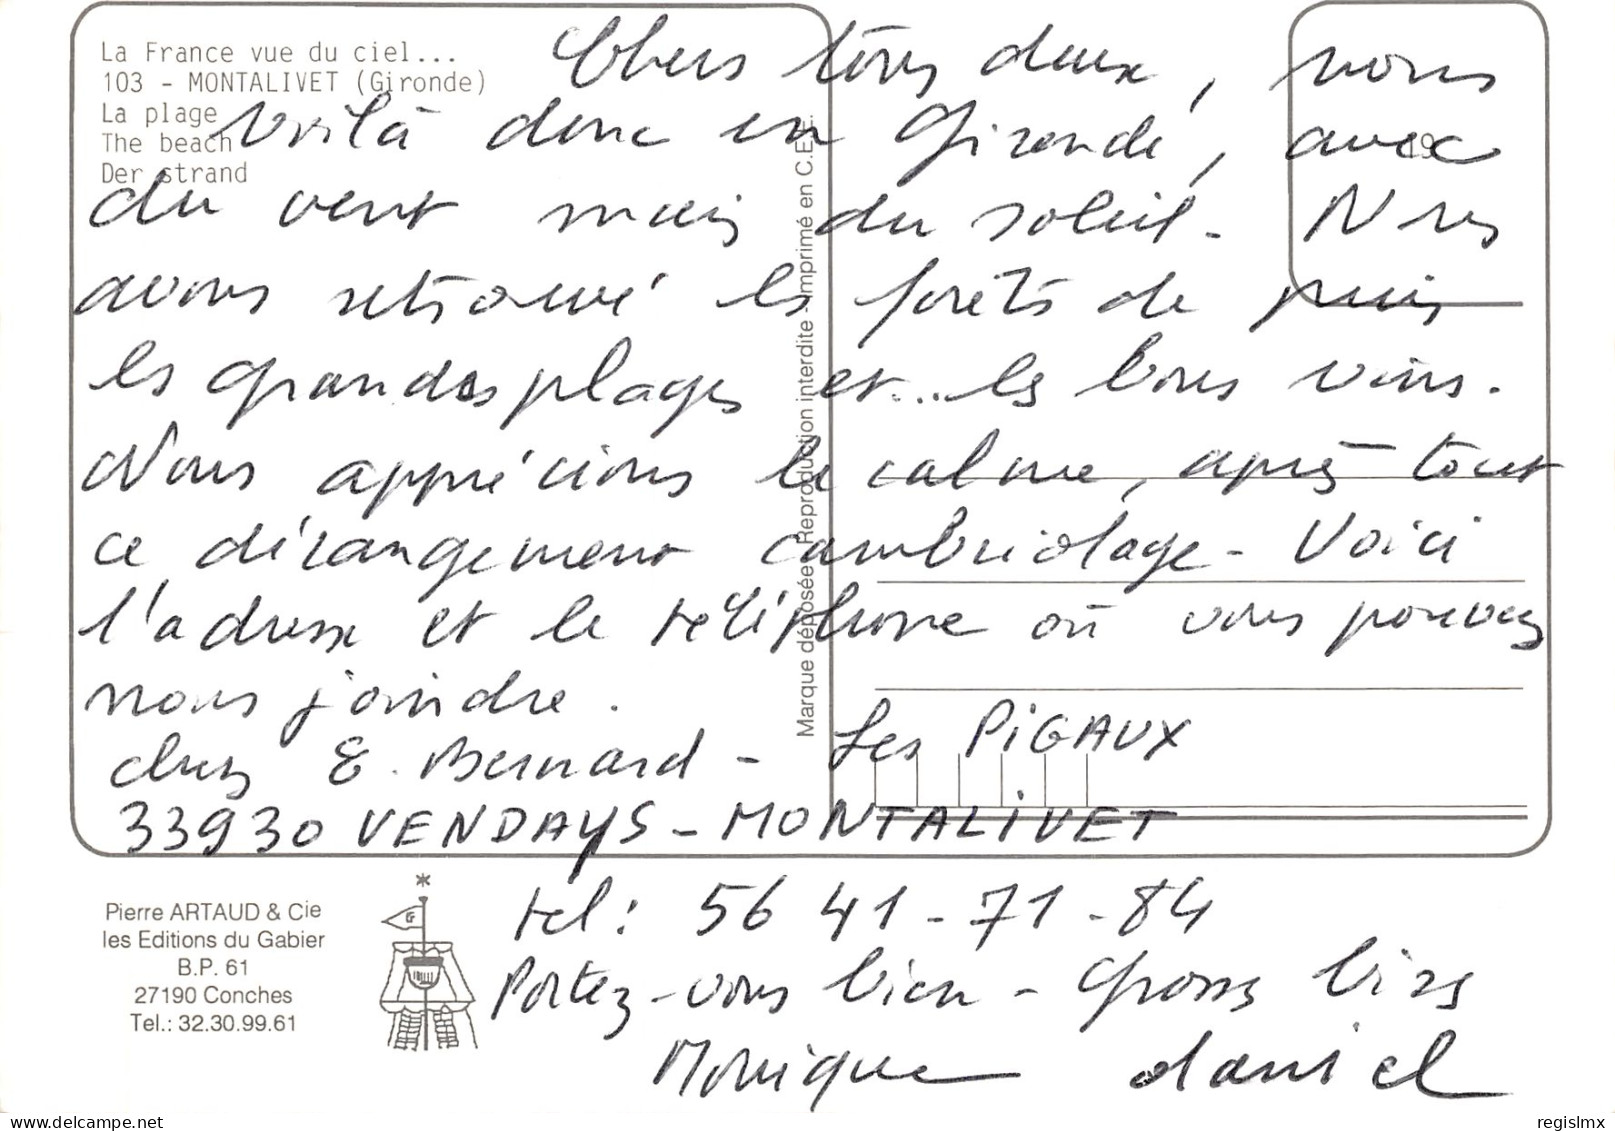 La France vue du ciel...
103 - MONTALIVET (Gironde)
La plage
The beach
Der strand
Chers tous deux, nous
voilà donc en Gironde, avec
du vent mais du soleil - Ns
avons retrouvé les forêts de pins
les grandes plages et... les bons vins.
Nous apprécions le calme, après tout
ce dérangement cambriolage - Voici
l'adresse et le téléphone où vous pouvez
nous joindre.
chez E. Bernard - Les PIGAUX
33930 VENDAYS - MONTALIVET
tel : 56 41 - 71 - 84
Portez-vous bien - Grosses bises
Monique daniel
Marque déposée - Reproduction interdite - Imprimé en C.E.E.
Pierre ARTAUD & Cie
les Editions du Gabier
B.P. 61
27190 Conches
Tel.: 32.30.99.61
regislmx